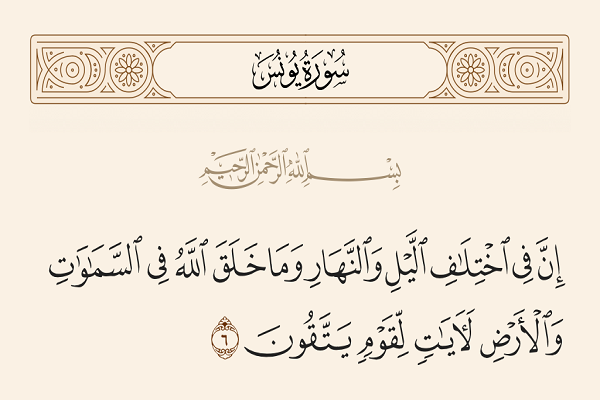 سُورَةُ يُونُسَ
بِسْمِ ٱللَّهِ ٱلرَّحْمَٰنِ ٱلرَّحِيمِ
إِنَّ فِى ٱخْتِلَٰفِ ٱلَّيْلِ وَٱلنَّهَارِ وَمَا خَلَقَ ٱللَّهُ فِى ٱلسَّمَٰوَٰتِ
وَٱلْأَرْضِ لَءَايَٰتٍ لِّقَوْمٍ يَتَّقُونَ ٦